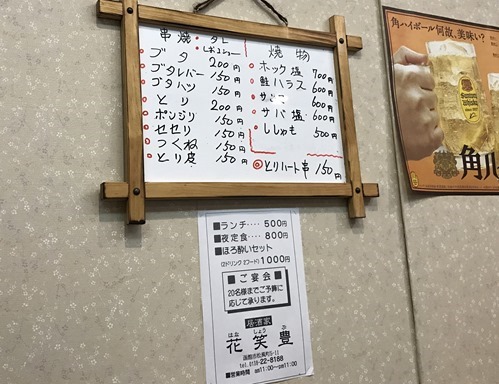 串焼・タレ
・レギュラー
ブタ 200円
ブタレバー 150円
ブタハツ 150円
とり 200円
ボンジリ 150円
セセリ 150円
つくね 150円
とり皮 150円
焼物
ホック塩 700円
鮭ハラス 600円
サンマ 600円
サバ塩 600円
ししゃも 500円
◎とりハート串 150円
■ランチ‥‥500円
■夜定食‥‥800円
■ほろ酔いセット
(2ドリンク 2フード)1000円
■ご宴会■
20名様までご予算に
応じて承ります。
居酒家
はな しょう ぶ
花笑豊
函館市松風町5-11
tel.0138-22-8188
■営業時間 am11:00~pm11:00
角ハイボール何故、美味い?
角ハ